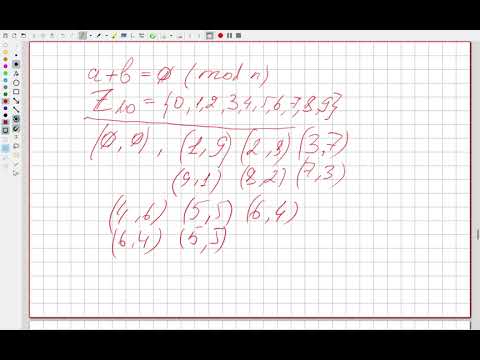 a+b = 0 (mod n)
Z₁₀ = {0,1,2,3,4,5,6,7,8,9}
(0, 0), (1, 9) (2, 8) (3,7)
(9,1) (8,2) (7,3)
(4,6) (5,5) (6,4)
(6,4) (5,5)